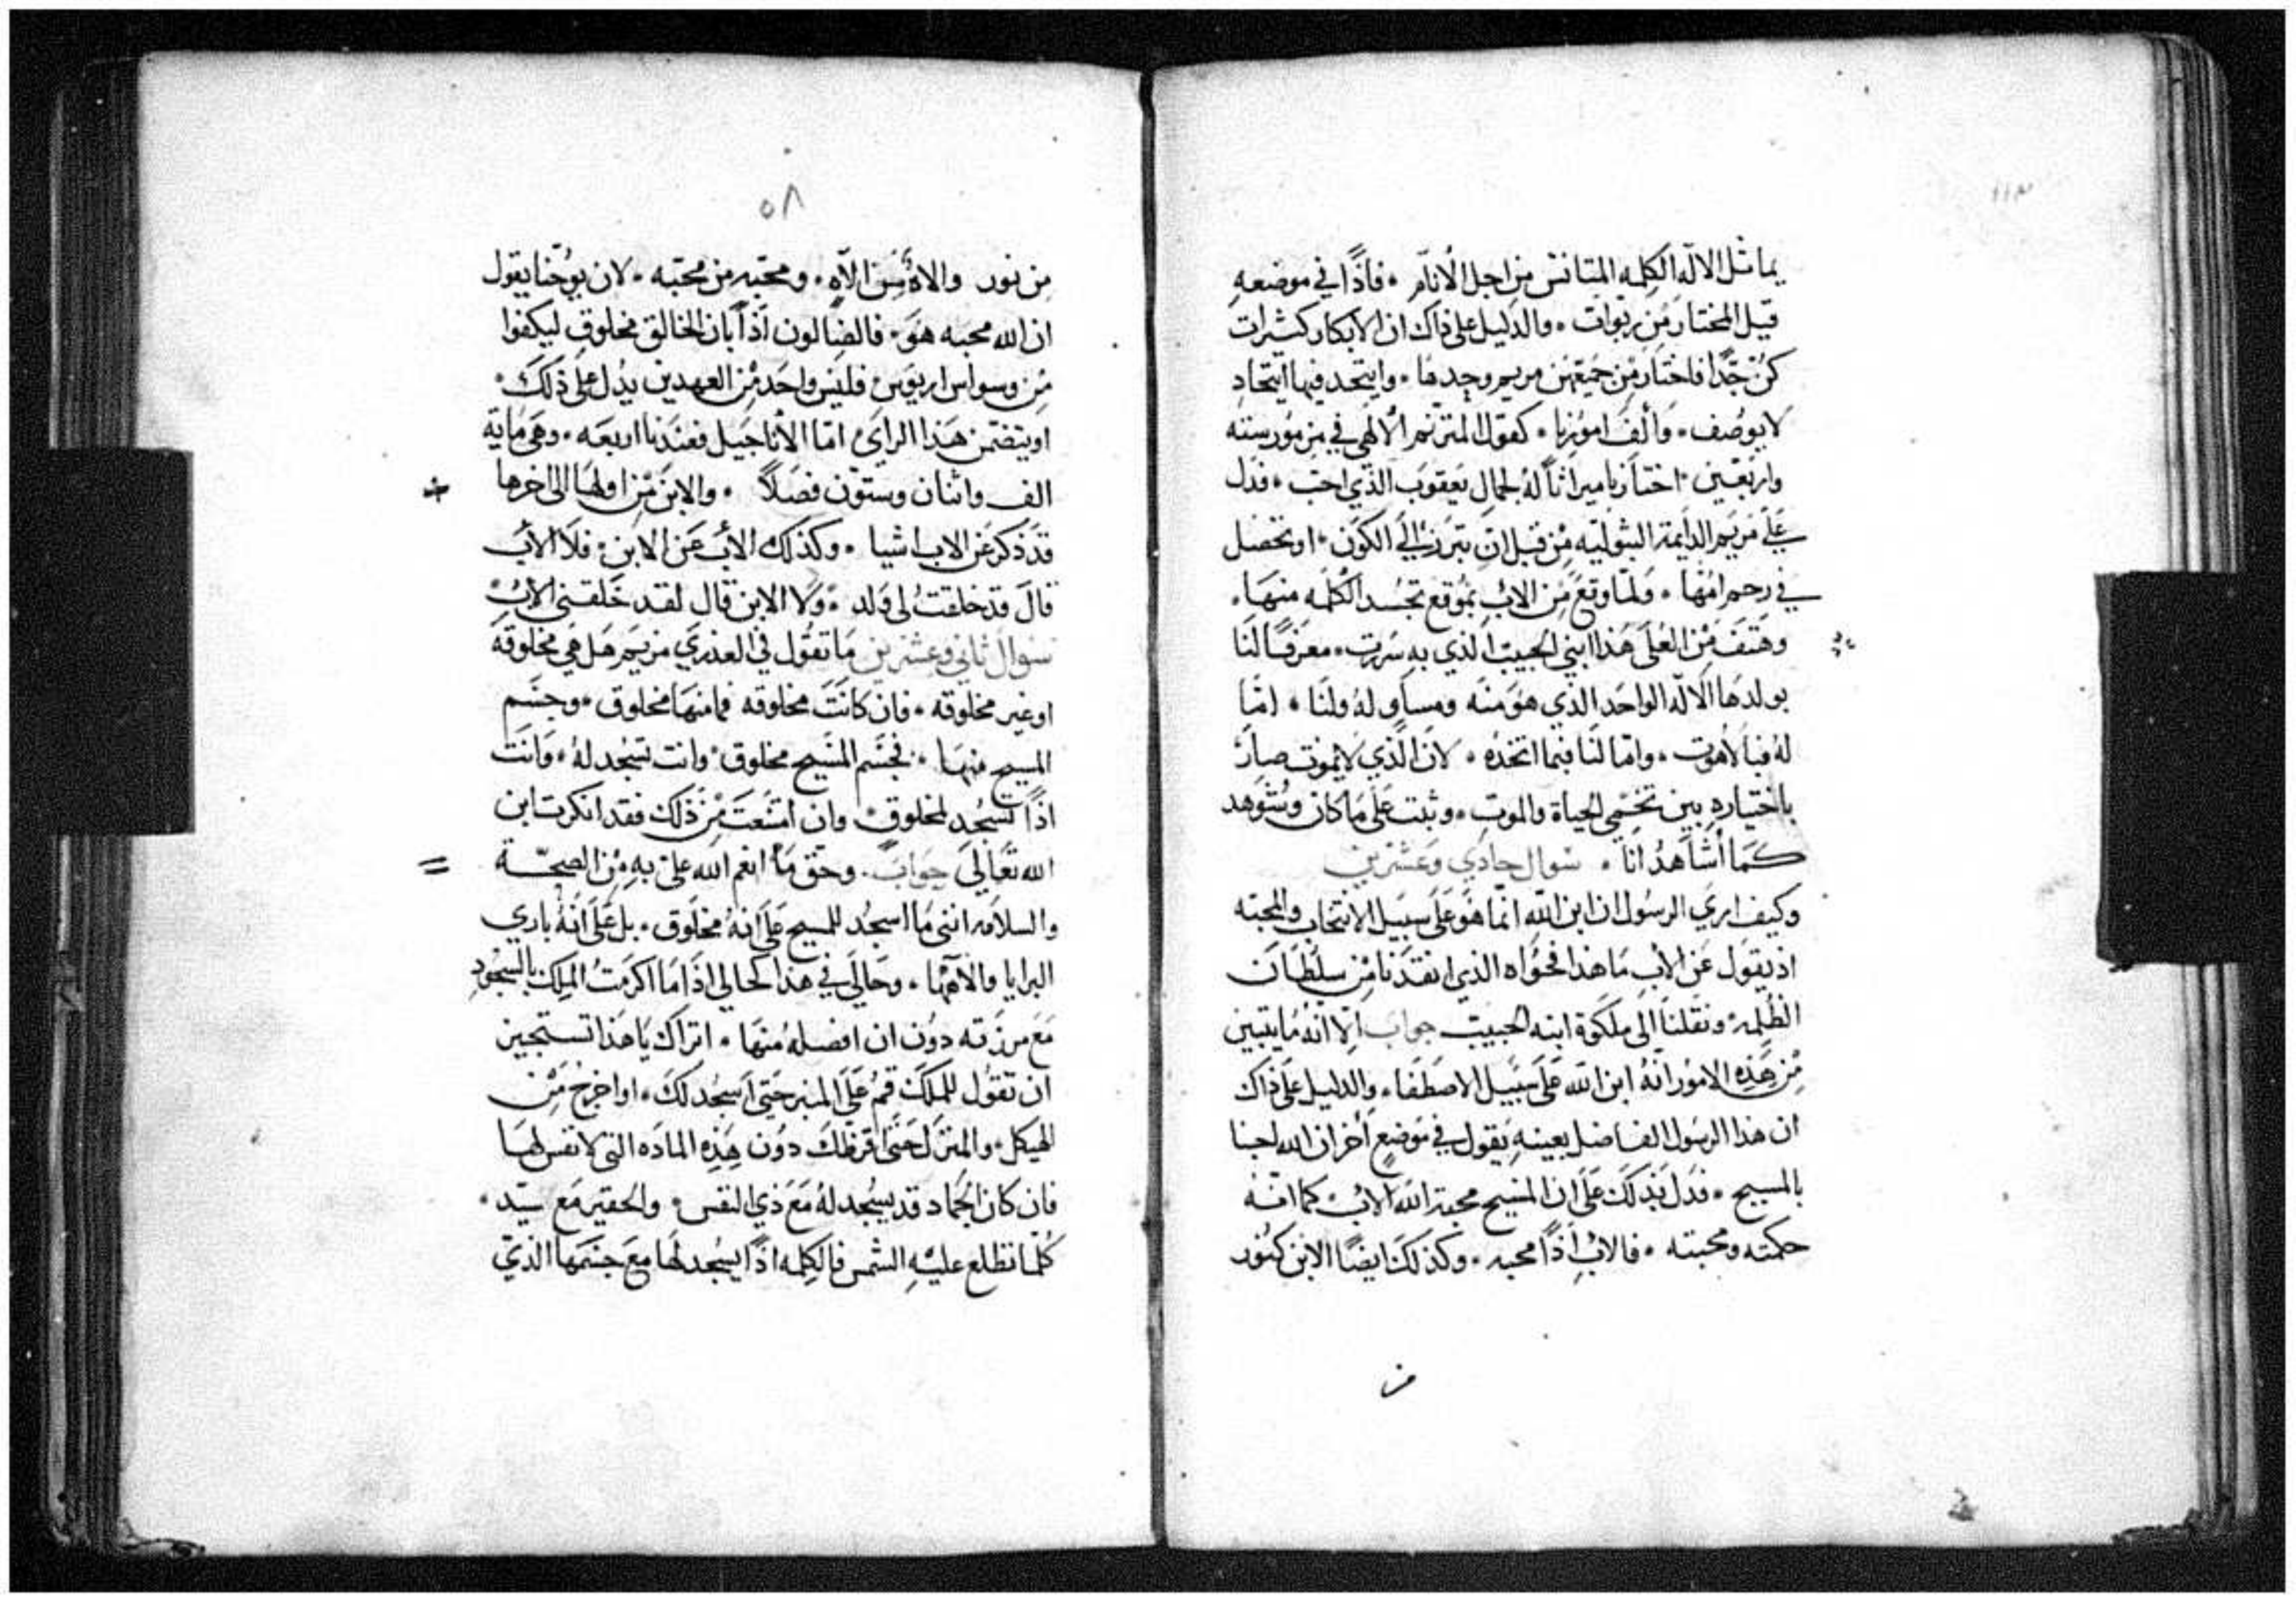 ١١٣
يماثل الاله الكلمه المتانس من اجل الانام • فاذًا في موضعه
قيل المختار من ربوات • والدليل على ذاك ان الابكار كثيرات
كن جدًا فاختار من جميعهن مريم وحدها • وايتحد فيها ايتحاد
لا يوصف • كقول المترنم الالهي في مزمور سته
واربعين • اختار يا ميراثاً له لجمال يعقوب الذي احب • فدل
على مريم الدايمة البتوليه من قبل ان تبرز الي الكون • او تحصل
في رحم امها • ولما وقع من الاب بموقع تجسد الكلمه منها •
وهتف من العلى هذا ابني الحبيب الذي به سررت • معرفًا لنا
بولدها الاله الواحد الذي هو منه ومساوٍ له ولنا • امّا
له فبالاهوت • وامّا لنا فبما اتخذه • لان الذي لا يموت صار
باختياره بين تخمي الحياة والموت • وثبت على ما كان وشوهد
كما اشاهد انا • سوال حادي وعشرين
وكيف ايري الرسول ان ابن الله انما هو على سبيل الانتخاب والمحبه
اذ يقول عن الاب ما هذا فحواه الذي انقذنا من سلطان
الظلمه ونقلنا الى ملكوة ابنه الحبيب جواب الا انه ما يتبين
من هذه الامور انه ابن الله على سبيل الاصطفا • والدليل على ذاك
ان هذا الرسول الفاضل بعينه يقول في موضع اخر ان الله احبنا
بالمسيح • فدل بذلك على ان المسيح محبة الله الاب كما انه
حكمته ومحبته • فالاب اذًا محبه • وكذلك ايضًا الابن كنور
من
٥٨
من نور والاه من الاه • ومحبه من محبه • لان يوحنا يقول
ان الله محبه هو • فالضالون اذاً بان الخالق مخلوق ليكفوا
من وسواس اريوس فليس واحد من العهدين يدل على ذلك •
او يتضمن هذا الراي امّا الاناجيل فعندنا اربعه • وهي ماية
الف واثنان وستون فصلاً • والابن من اولها الى اخرها
قد ذكر عن الاب اشيا • وكذلك الاب عن الابن • فلا الاب
قال قد خلقت لي ولد • ولا الابن قال لقد خلقني الاب
سوال ثاني وعشرين ما تقول في العذري مريم هل هي مخلوقة
او غير مخلوقه • فان كانت مخلوقه فما منها مخلوق • وجسم
المسيح منها • فجسم المسيح مخلوق وانت تسجد له • وانت
اذًا تسجد لمخلوق وان امتنعت من ذلك فقد انكرت ابن
الله تعالى جواب • وحق ما انعم الله علي به من الصحّة
والسلامه انني ما اسجد للمسيح على انه مخلوق • بل على انه باري
البرايا والاهها • وحالي في هذا كحالي اذا ما اكرمت الملك بالسجود
مع برزته دون ان افصله منها • اتراك يا هذا تستجيز
ان تقول للملك قم على المنبر حتى اسجد لك • او اخرج من
الهيكل والمنزل حتى اقرظك دون هذه الماده التي لا نفس لها
فان كان الجماد قد يسجد له مع ذي النفس • والحقير مع سيّد •
كلما تطلع عليه الشمس فالكلمه اذًا يسجد لها مع جسمها الذي